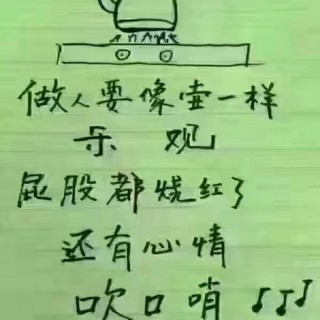 做人要像壶一样
乐 观
屁股都烧红了
还有心情
吹口哨 ♪♪♪